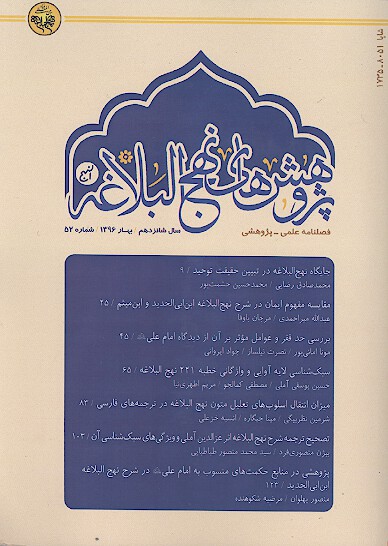 شاپا ۸۰۵۱-۱۷۳۵
پژوهش‌های نهج البلاغه
فصلنامه علمی - پژوهشی
سال شانزدهم / بهار ۱۳۹۶ / شماره ۵۲
جایگاه نهج‌البلاغه در تبیین حقیقت توحید / ۹
محمدصادق رضایی / محمدحسین حشمت‌پور
مقایسه مفهوم ایمان در شرح نهج‌البلاغه ابن‌ابی‌الحدید و ابن‌میثم / ۲۵
عبدالله میراحمدی / مرجان باوفا
بررسی حد فقر و عوامل مؤثر بر آن از دیدگاه امام علی / ۴۵
مونا امانی‌پور / نصرت نیلساز / جواد ایروانی
سبک‌شناسی لایه آوایی و واژگانی خطبه ۲۲۱ نهج البلاغه / ۶۵
حسین یوسفی آملی / مصطفی کمالجو / مریم اطهری‌نیا
میزان انتقال اسلوب‌های تعلیل متون نهج البلاغه در ترجمه‌های فارسی / ۸۳
شرمین نظربیگی / مینا جیگاره / انسیه خزعلی
تصحیح ترجمه شرح نهج البلاغه اثر عزالدین آملی و ویژگی‌های سبک‌شناسی آن / ۱۰۳
بیژن منصوری‌فرد / سید محمد منصور طباطبایی
پژوهشی در منابع حکمت‌های منسوب به امام علی در شرح نهج البلاغه
ابن‌ابی‌الحدید / ۱۲۳
منصور پهلوان / مرضیه شکوهنده